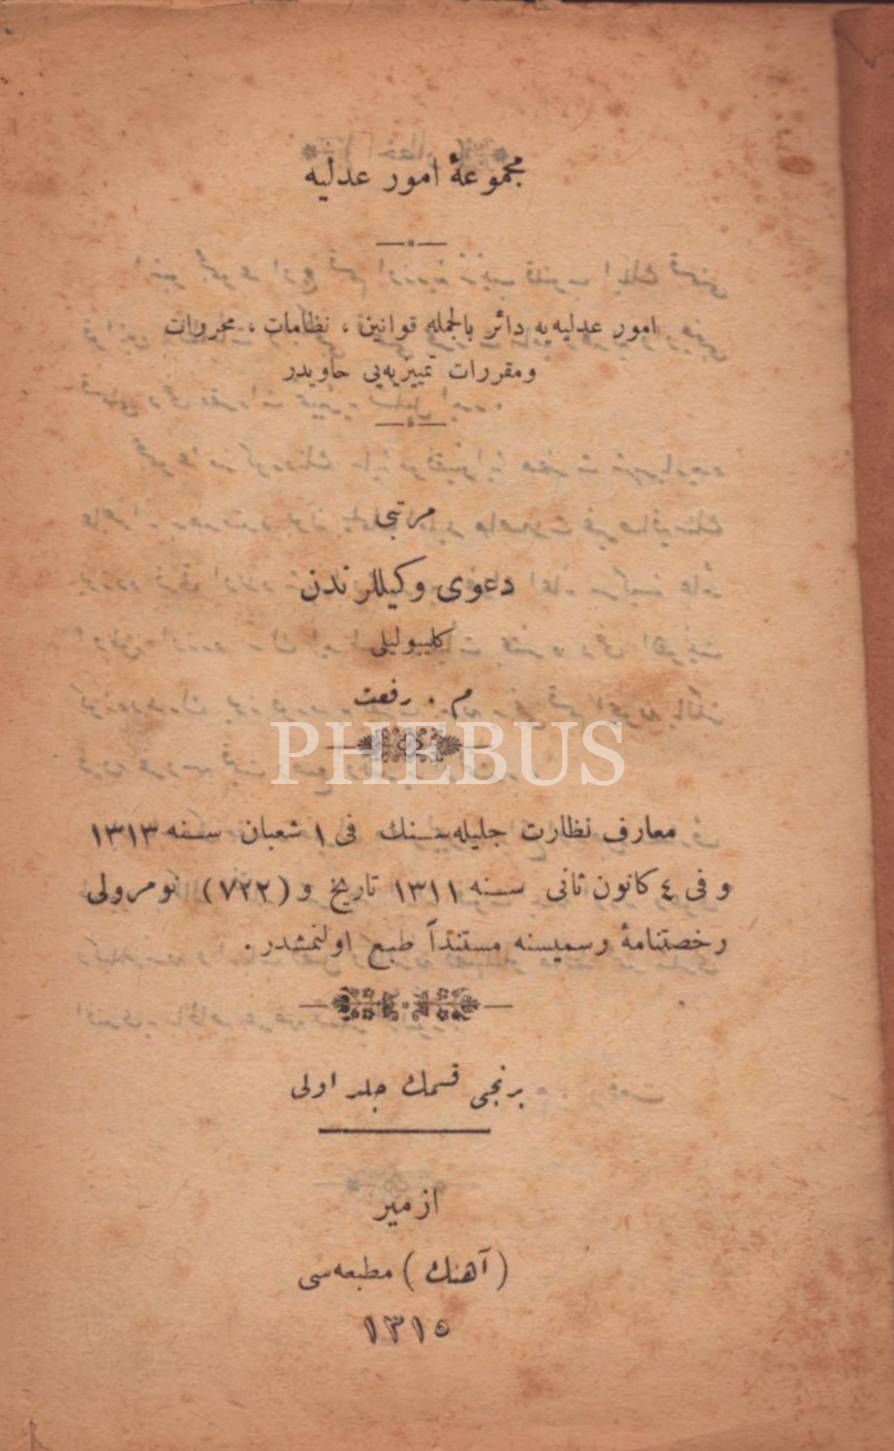 مجموعهٔ امور عدلیه
امور عدلیه‌یه دائر بالجمله قوانین ، نظامات ، محررات
ومقررات تمییزیه‌یی حاویدر
مرتبی
دعوی وکیللرندن
کلیبولیلی
م . رفعت
PHEBUS
معارف نظارت جلیله‌سنك فی ١ شعبان سنه ١٣١٣
و فی ٤ کانون ثانی سنه ١٣١١ تاریخ و (٧٢٢) نومرولی
رخصتنامهٔ رسمیسنه مستنداً طبع اولنمشدر .
برنجی قسمك جلد اولی
ازمیر
(آهنك) مطبعه‌سی
١٣١٥